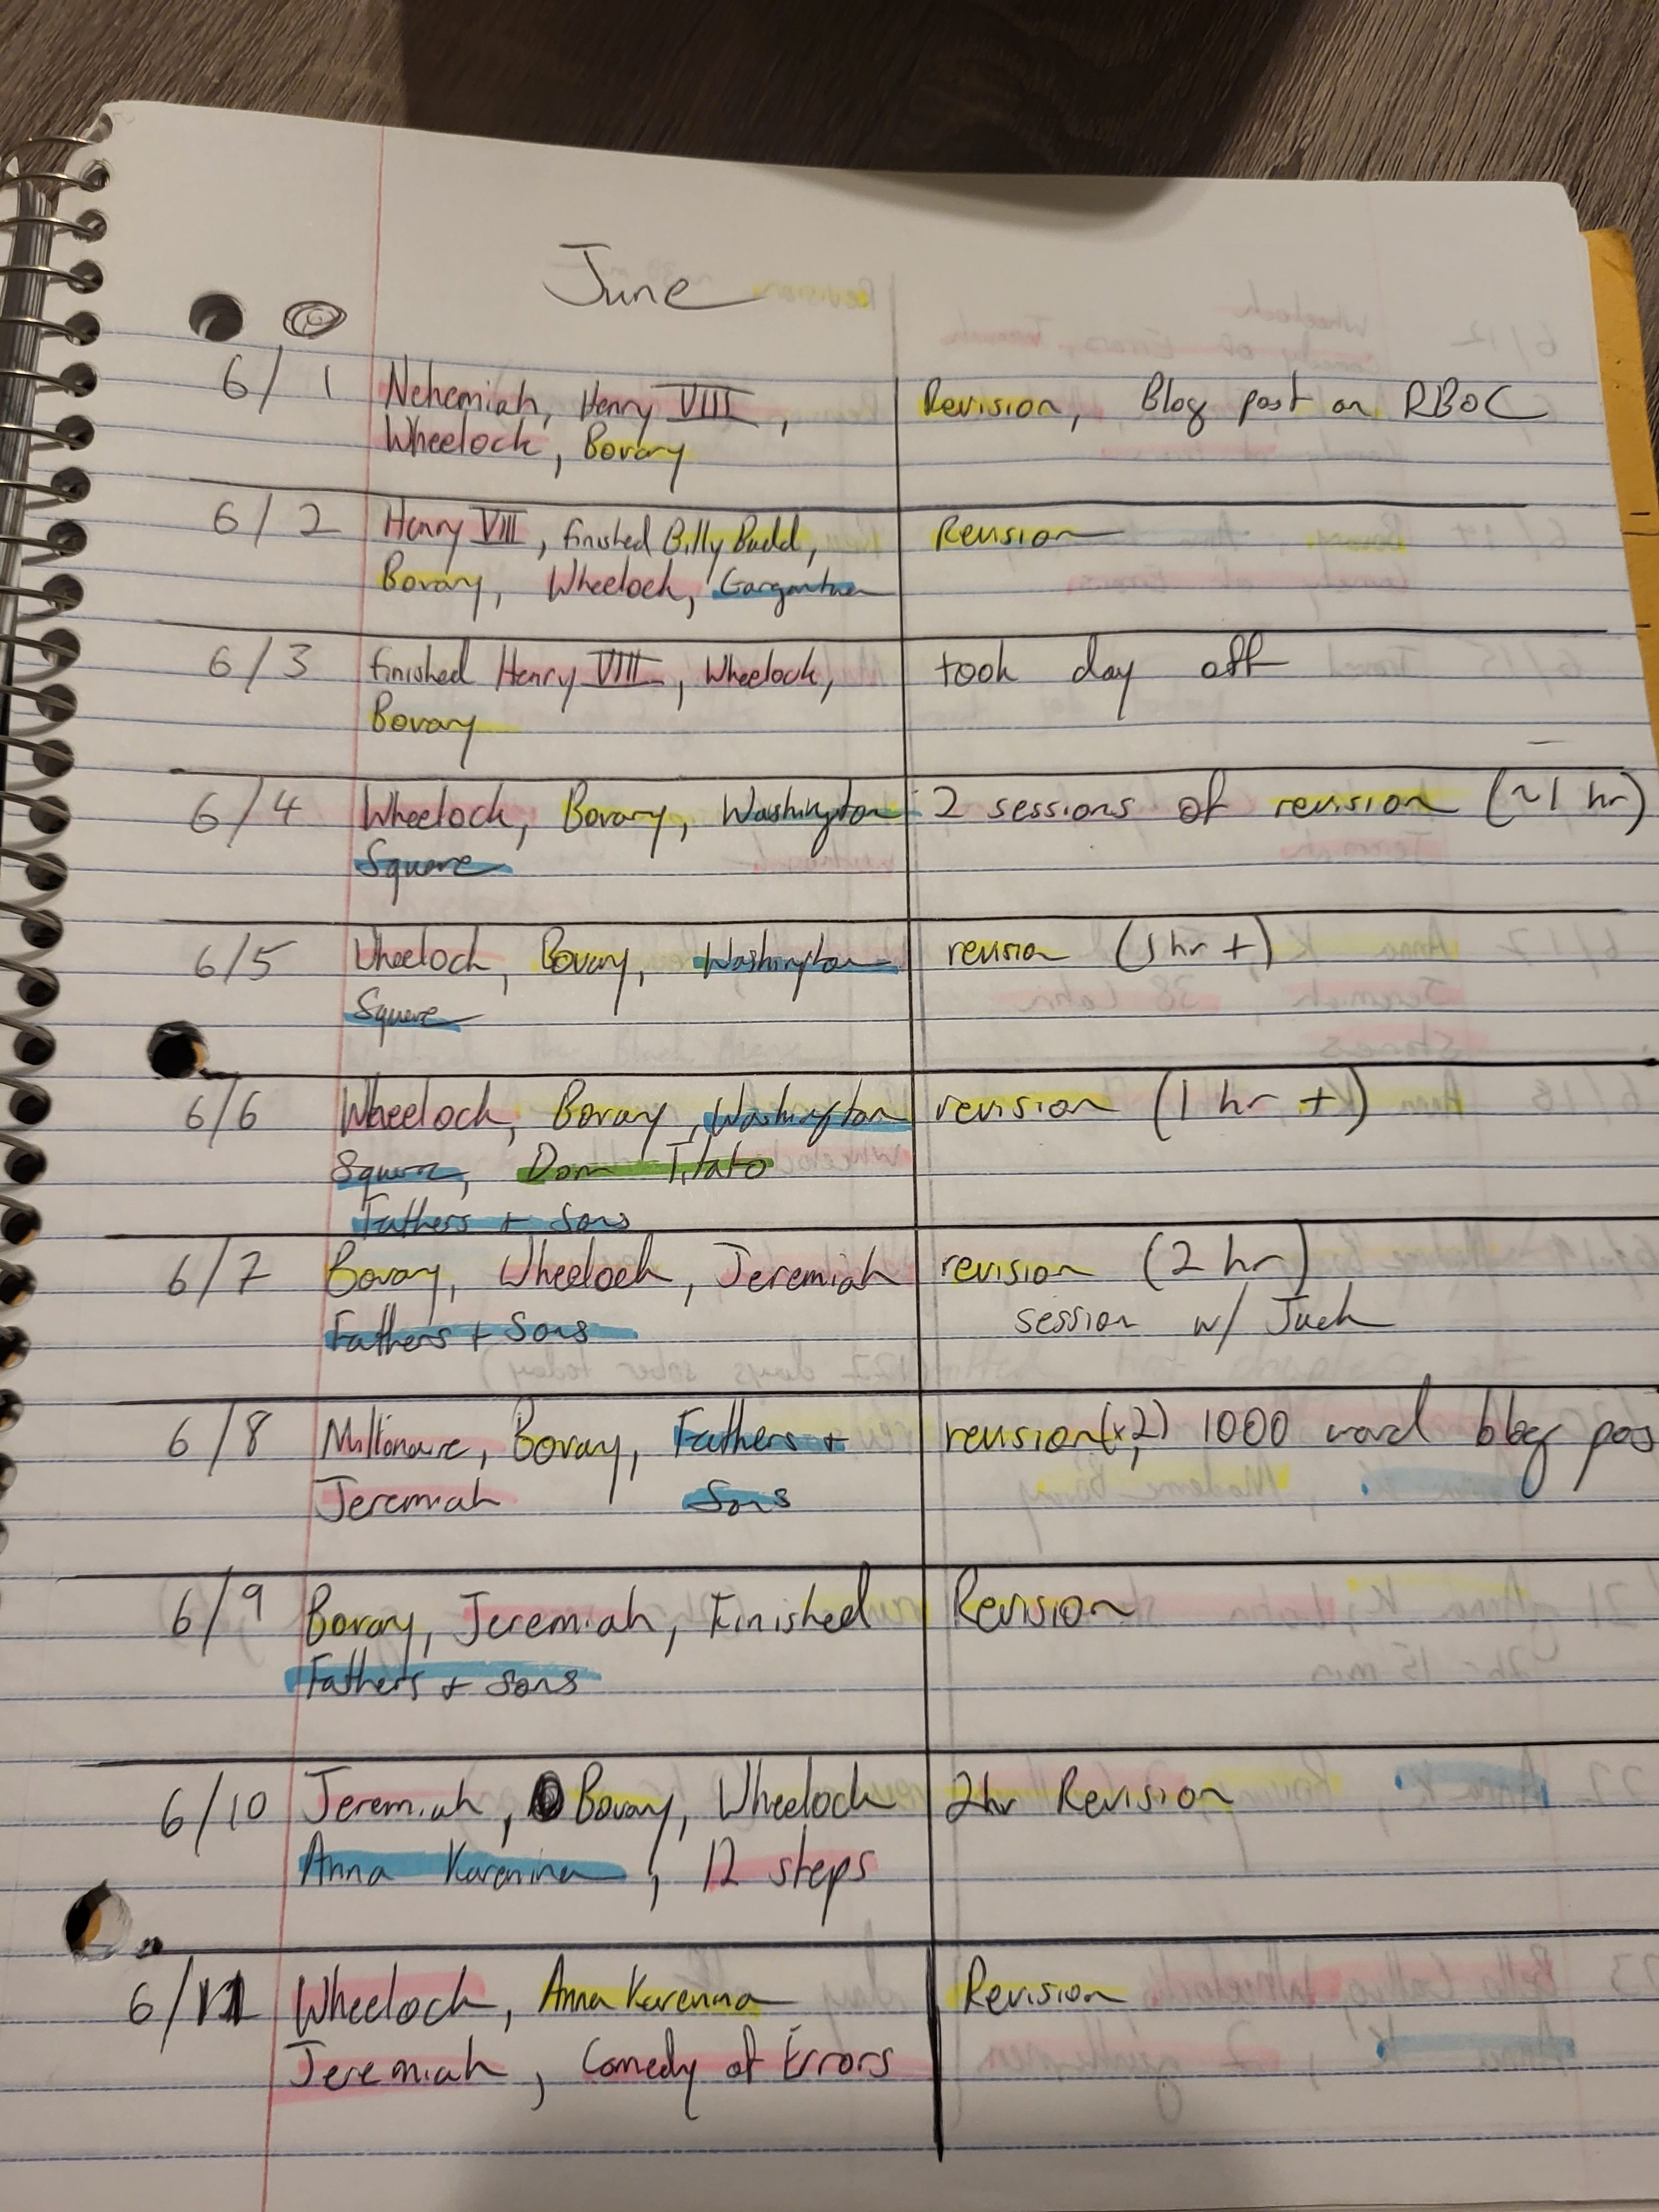 June
6/1 Nehemiah, Henry VIII, Revision, Blog post on RBOC
Wheelock, Bovary
6/2 Henry VIII, finished Billy Budd, Revision
Bovary, Wheelock, Gargantua
6/3 finished Henry VIII, Wheelock, took day off
Bovary
6/4 Wheelock, Bovary, Washington 2 sessions of revision (~1 hr)
Square
6/5 Wheelock, Bovary, Washington revision (1 hr +)
Square
6/6 Wheelock, Bovary, Washington revision (1 hr +)
Square, Dom
Fathers + Sons
6/7 Bovary, Wheelock, Jeremiah revision (2 hr)
Fathers + Sons session w/
6/8 Bovary, Fathers + revision (x2) 1000 word blog pos
Jeremiah Sons
6/9 Bovary, Jeremiah, Finished Revision
Fathers + Sons
6/10 Jeremiah, Bovary, Wheelock 2hr Revision
Anna Karenina, 12 steps
6/11 Wheelock, Anna Karenina Revision
Jeremiah, Comedy of Errors